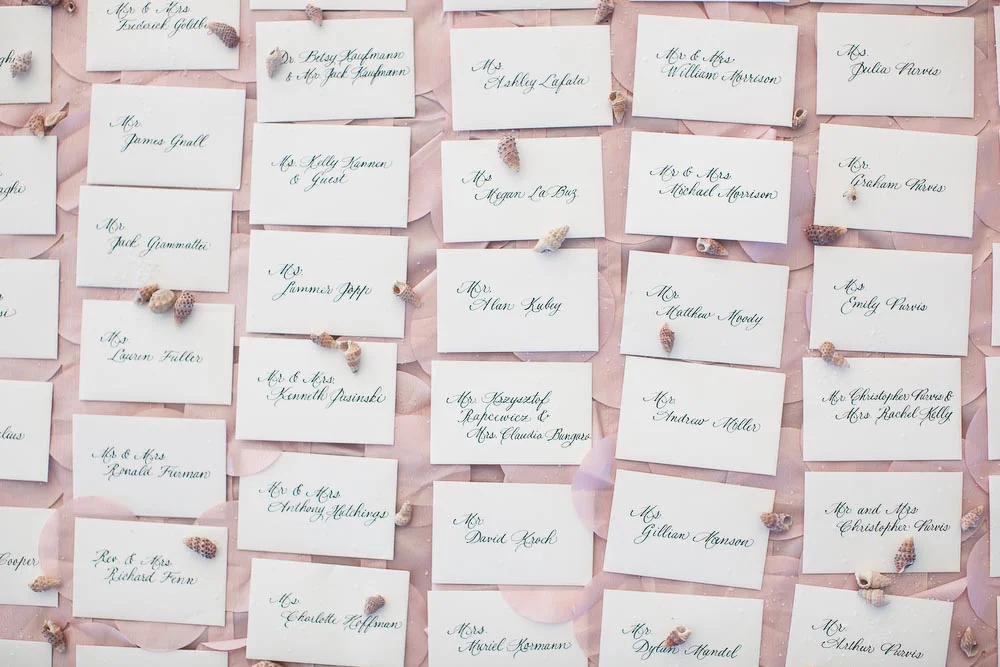 Cooper
Mr & Mrs.
Mr.
James Gnall
Mr.
Jack Giammattei
Ms.
Lauren Fuller
Mr & Mrs
Ronald Fierman
Rev. & Mrs.
Richard Fenn
Dr. Betsy Kaufmann
& Mr. Jack Kaufmann
Ms. Kelly Kannen
& Guest
Ms.
Summer Jopp
Mr & Mrs.
Kenneth Jasinski
Mr & Mrs.
Anthony Hutchings
Ms.
Charlotte Hoffman
Ms.
Ashley Lafata
Ms.
Megan La Buz
Mr.
Alan Kubey
Mr. Krzysztof
Rapcewicz &
Mrs. Claudia Bungaro
Mr.
David Kroch
Mrs.
Muriel Kormann
Mr & Mrs.
William Morrison
Mr & Mrs.
Michael Morrison
Mr.
Matthew Moody
Mr.
Andrew Miller
Ms
Gillian Manson
Mr.
Dylan Mandel
Ms.
Julia Purvis
Mr.
Graham Purvis
Ms
Emily Purvis
Mr Christopher Purvis &
Mrs. Rachel Kelly
Mr and Mrs
Christopher Purvis
Mr.
Arthur Purvis